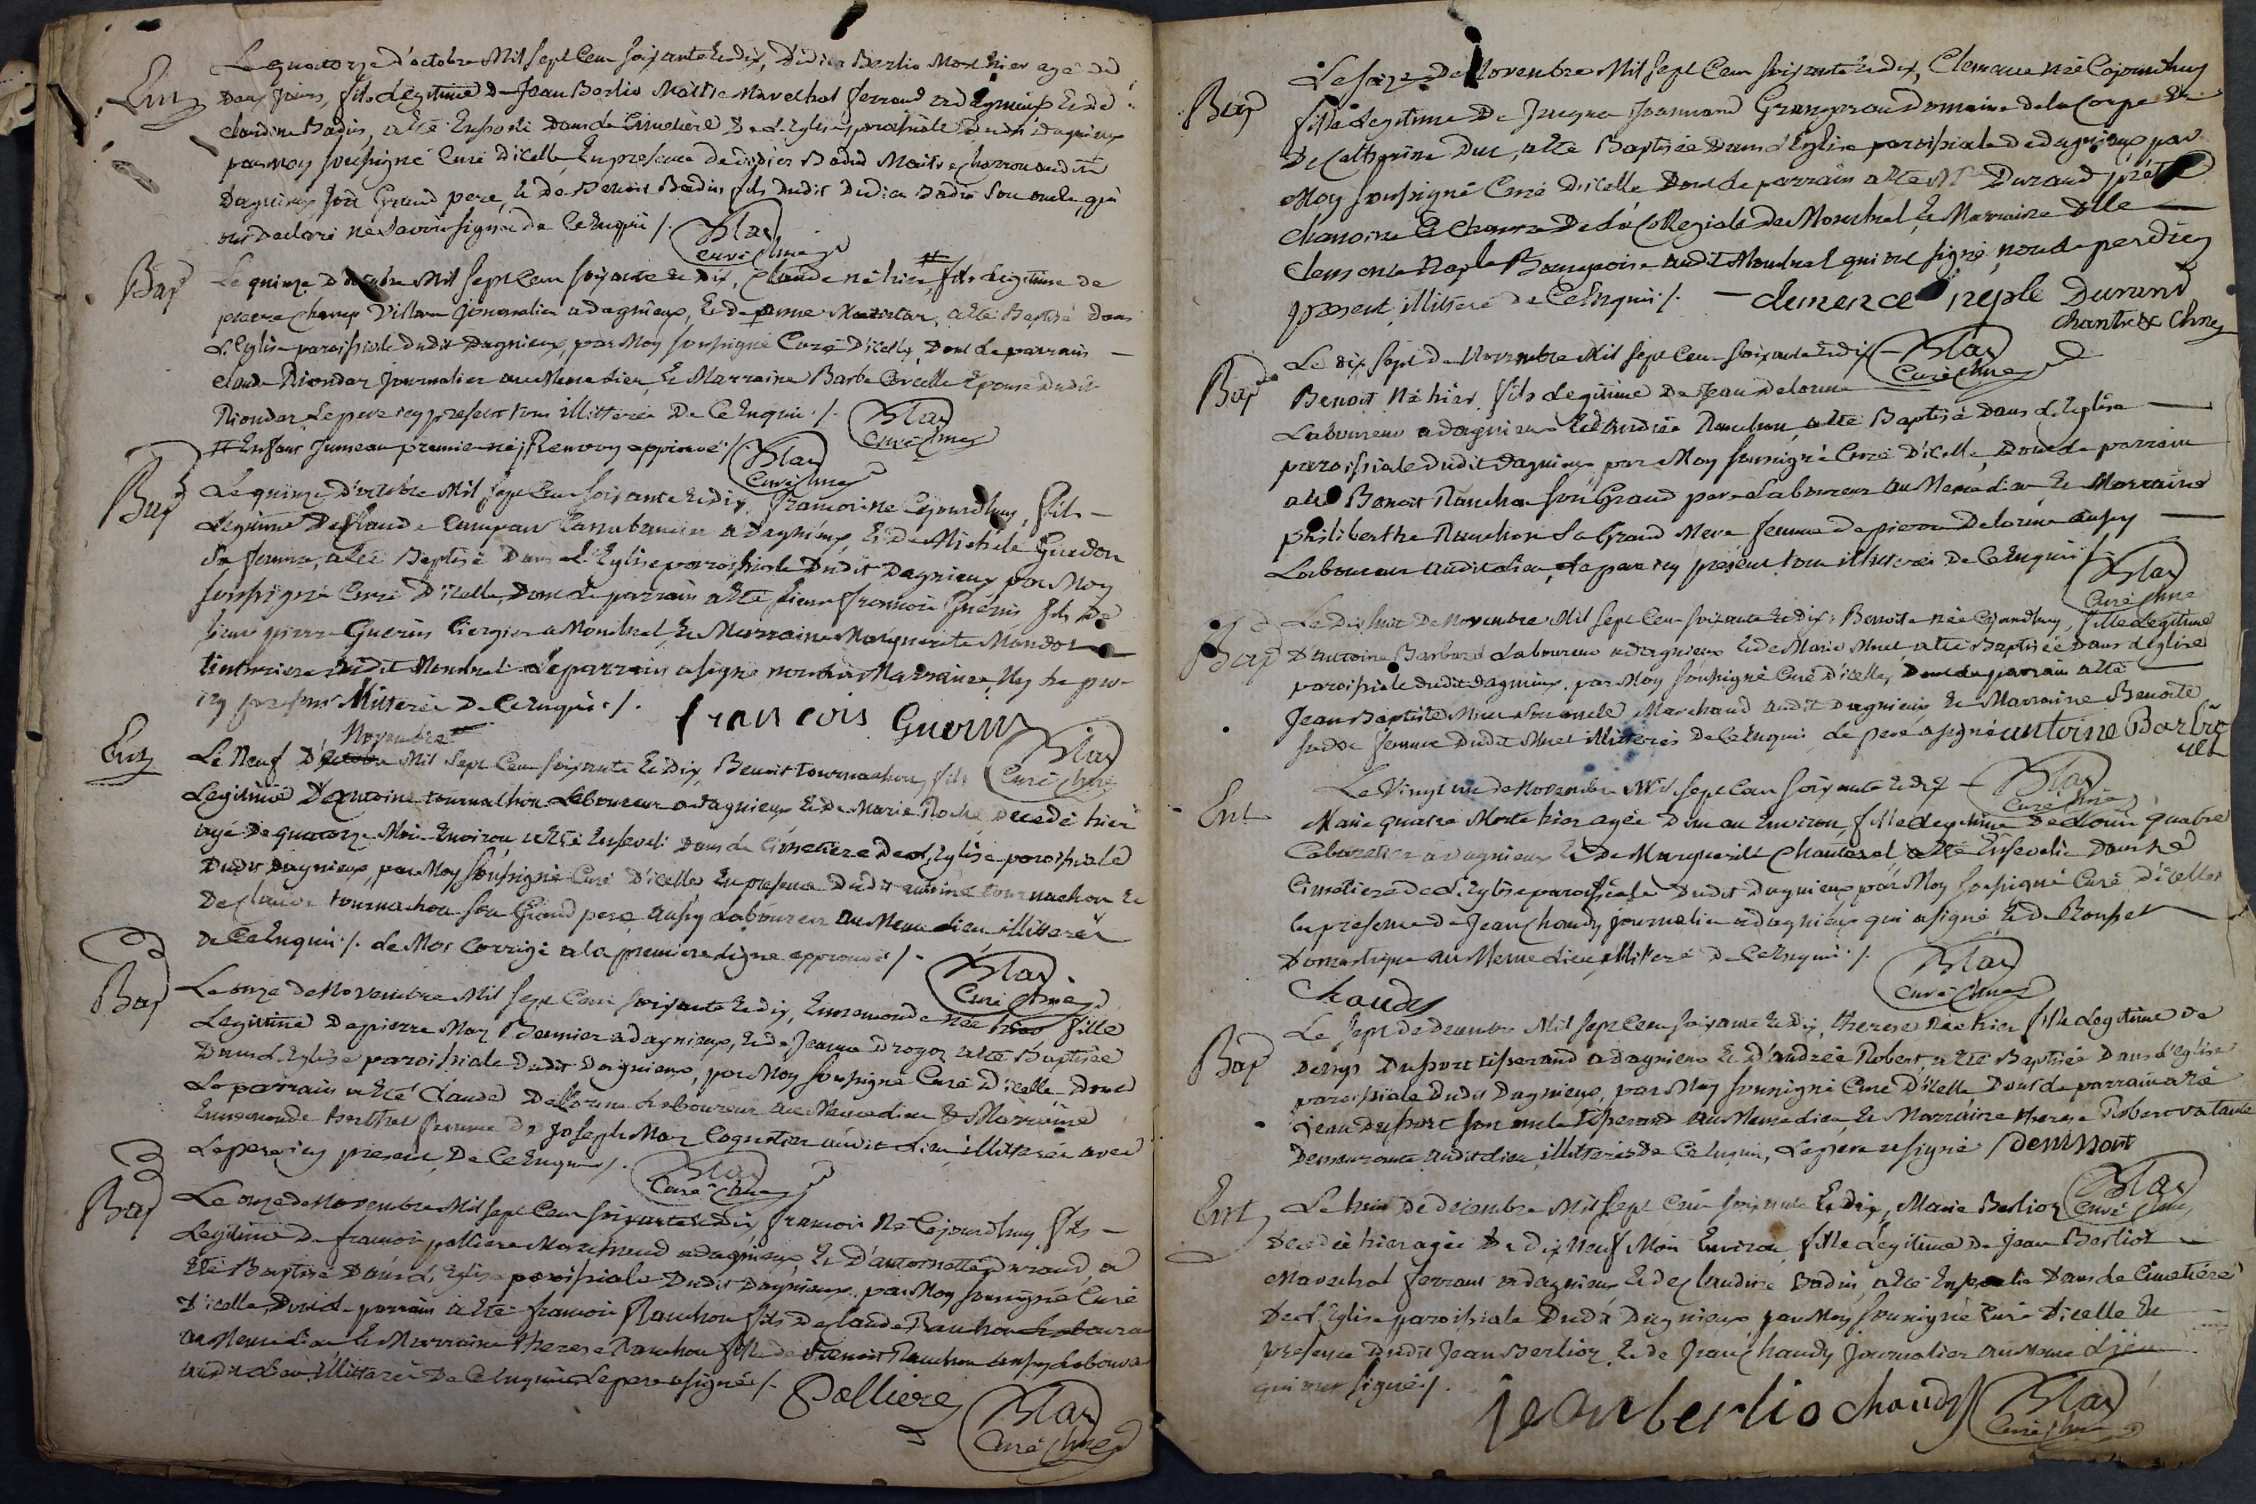 Ent
Le quatorze d'octobre Mil sept Cent soixante Et dix, Didier Berlio Mort hier agé de
Deux jours, fils Legitime De Jean Berlio Maitre Marechal ferrand a dagnieux Et de
claudine Badin, a eté Enseveli Dans Le Cimetière De L'Eglise paroissiale Dudit dagnieux
par Moy soussigné Curé d'icelle En presence De didier Badin Maitre charron audit
Dagnieux son Grand pere, Et De Benoit Badin fils Dudit Didier Badin son oncle, qui
ont Declaré ne savoir signer De Ce Enquis /.
Blan
Curé Chne
Bap
Le quinze d'octobre Mil sept Cent soixante Et Dix, Claude né hier, # fils Legitime de
pierre Champ Villars journalier a dagnieux, Et De ... , a eté Baptisé Dans
L'Eglise paroissiale Dudit Dagnieux, par Moy soussigné Curé D'icelle, Dont Le parrain
claude Riondar journalier au Meme Lieu, Et Marraine Barbe Corcelle Epouse dudit
Riondar, Le pere icy present tous illitterés De Ce Enquis /.
Blan
Curé Chne
# Enfant Jumeau premier né / Renvoy approuvé /
Blan
Curé Chne
Bap
Le quinze D'octobre Mil sept Cent soixante Et Dix, Francoise Cejourdhuy, fils
Legitime De Claude Campan Cabaretier a Dagnieux, Et De Michele Guedon
Sa femme, a eté Baptisé Dans L'Eglise paroissiale Dudit Dagnieux par Moy
soussigné Curé D'icelle, Dont Le parrain a eté sieur francois Guerin fils De
sieur pierre Guerin Ciergier a Montluel Et Marraine Marguerite Mandot
audit Montluel. Le parrain a signé non la Marraine Ny Le pere
icy present illitterés De Ce Enquis /.
francois Guerin
Blan
Curé Chne
Ent
Novembre
Le Neuf D'octobre Mil Sept Cent soixante Et Dix, Benoit tournachon, fils
Legitime D'Antoine tournachon Laboureur a dagnieux Et De Marie Roche, Decedé hier
agé De quatorze Mois Environ a eté Enseveli Dans Le Cimetiere De L'Eglise paroissiale
Dudit Dagnieux, par Moy soussigné Curé D'icelle En presence Dudit antoine tournachon Et
De Claude tournachon son Grand pere, aussy Laboureur au Meme Lieu illitterés
de Ce Enquis /. Le Mot corrigé a la premiere Ligne approuvé /.
Blan
Curé Chne
Bap
Le onze De Novembre Mil sept Cent soixante Et dix, Ennemonde née hier fille
Legitime De pierre May Beunier a dagnieux, Et De Jeanne Drogoz a eté Baptisée
Dans L'Eglise paroissiale Dudit Dagnieux, par Moy soussigné Curé D'icelle Dont
Le parrain a eté Claude Delorme Laboureur au Meme Lieu Et Marraine
Ennemonde Berthet femme De Joseph May Coquetier audit Lieu illitterés avec
Le pere icy present De Ce Enquis /.
Blan
Curé Chne
Bap
Le onze De Novembre Mil sept Cent soixante Et Dix francois Né Cejourdhuy fils
Legitime De francois polliere Marchand a dagnieux, Et D'antoinette Durand, a
Eté Baptisé Dans L'Eglise paroissiale Dudit Dagnieux par Moy soussigné Curé
D'icelle, Dont Le parrain a eté francois Ranchon fils De Claude Ranchon Laboureur
au Meme Lieu Et Marraine therese Ranchon fille de Benoit Ranchon aussy Laboureur
audit Lieu, illitterés De Ce Enquis Le pere a signé /.
Polliere
Blan
Curé Chne
Bap
Le seize De Novembre Mil sept Cent soixante Et dix, Clemence née Cejourdhuy
fille Legitime De Jacque ... Granger au Domaine de la Corpe Et
De Catherine Duc, a eté Baptisée Dans L'Eglise paroissiale De dagnieux par
Moy soussigné Curé D'icelle Dont Le parrain a eté Mr Durand prêtre
Chanoine Et Chantre De La Collegiale De Montluel, Et Marraine Dlle
Clemence Neple Bourgeoise audit Montluel qui ont signé, non Le pere icy
present, illitteré De Ce Enquis /.
clemence neple Durand
chantre & chne
Blan
Curé Chne
Bap
Le dix sept De Novembre Mil sept Cent soixante Et dix
Benoit Né hier fils Legitime De Jean Delorme
Laboureur a dagnieux Et D'andrée Ranchon, a eté Baptisé Dans L'Eglise
paroissiale Dudit Dagnieux, par Moy soussigné Curé D'icelle, Dont Le parrain
a eté Benoit Ranchon son Grand pere Laboureur au Meme Lieu Et Marraine
philiberthe Ranchon sa Grand Mere femme De pierre Delorme aussy
Laboureur audit Lieu, Le pere icy present tous illitterés De Ce Enquis /.
Blan
Curé Chne
Bap
Le Dix huit De Novembre Mil sept Cent soixante Et Dix, Benoite née Cejourdhuy, fille Legitime
D'antoine Barbaret Laboureur a dagnieux Et De Marie Minet a eté Baptisée Dans L'Eglise
paroissiale Dudit Dagnieux, par Moy soussigné Curé D'icelle, Dont Le parrain a eté
Jean Baptiste Minet son oncle Marchand audit Dagnieux Et Marraine Benoite
... femme Dudit Minet illitterés De Ce Enquis Le pere a signé antoine Barba
ret
Blan
Curé Chne
Ent
Le Vingt un De Novembre Mil sept Cent soixante Et dix
Marie quatre Morte hier agée D'un an Environ, fille Legitime De Louis quatre
Cabaretier a dagnieux Et De Marguerite Chanterel, a eté Ensevelie Dans Le
Cimetiere De L'Eglise paroissiale Dudit Dagnieux par Moy soussigné Curé D'icelle
En presence De Jean Chaudy journalier a dagnieux qui a signé Et De ...
Domestique au Meme Lieu illitteré De Ce Enquis /.
Chaudy
Blan
Curé Chne
Bap
Le sept De Decembre Mil sept Cent soixante Et Dix, therese née hier fille Legitime De
Denys Duport tisserand a dagnieux Et D'andrée Robert, a eté Baptisée Dans L'Eglise
paroissiale Dudit Dagnieux, par Moy soussigné Curé D'icelle Dont Le parrain a eté
Jean Duport son oncle tisserand au Meme Lieu, Et Marraine therese Robert sa tante
Demeurante audit Lieu, illitterés De Ce Enquis, Le pere a signé /
Blan
Curé Chne
Ent
Le huit De Decembre Mil sept Cent soixante Et Dix, Marie Berlioz
Decedée hier agée De Dix Neuf Mois Environ, fille Legitime De Jean Berlioz
Marechal ferrant a dagnieux Et De Claudine Badin, a eté Ensevelie Dans Le Cimetiére
De L'Eglise paroissiale Dudit Dagnieux par Moy soussigné Curé D'icelle En
presence Dudit Jean Berlioz Et De Jean Chaudy Journalier au Meme Lieu
qui ont signé /.
jean berlio chaudy
Blan
Curé Chne